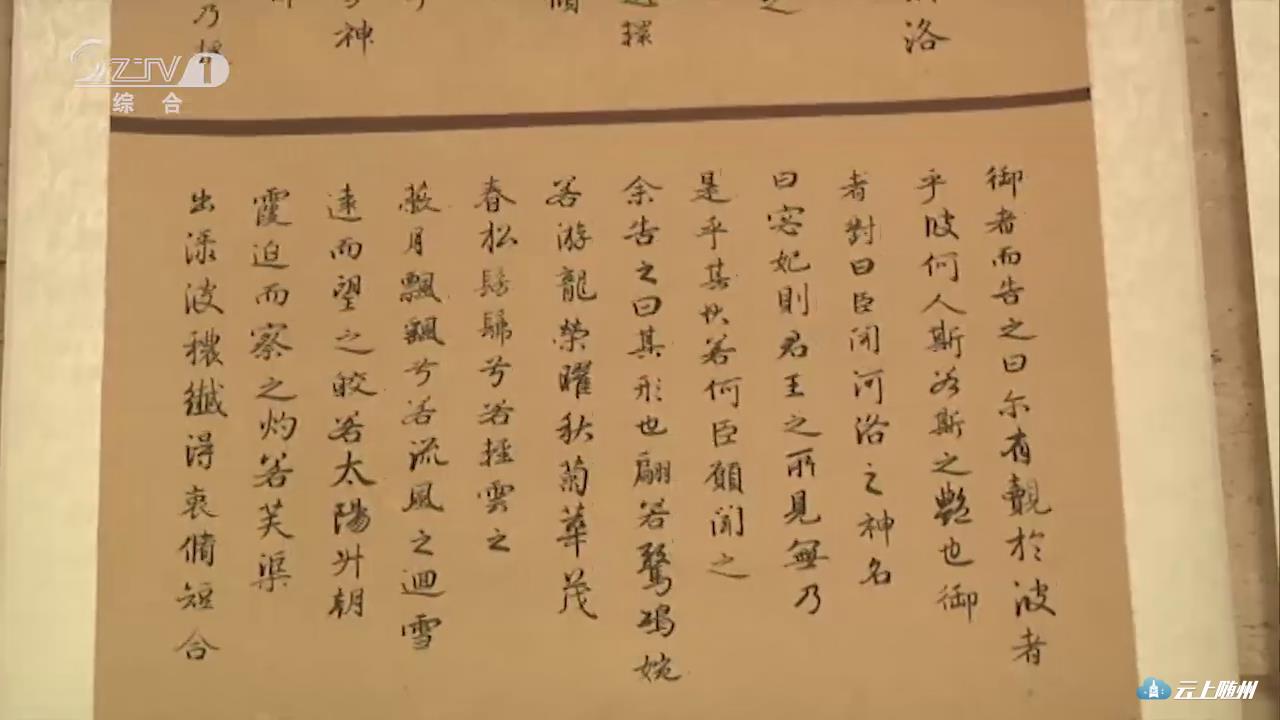 ZJTV 1
综合
洛
之
神
乃
御者而告之曰尔有覿於彼者
乎彼何人斯若斯之艷也御
者對曰臣聞河洛之神名
曰宓妃則君王之所見無乃
是乎其狀若何臣願聞之
余告之曰其形也翩若驚鴻婉
若游龍榮曜秋菊華茂
春松髣髴兮若輕雲之
蔽月飄飖兮若流風之迴雪
遠而望之皎若太陽升朝
霞迫而察之灼若芙渠
出渌波穠纖得衷脩短合
云上随州